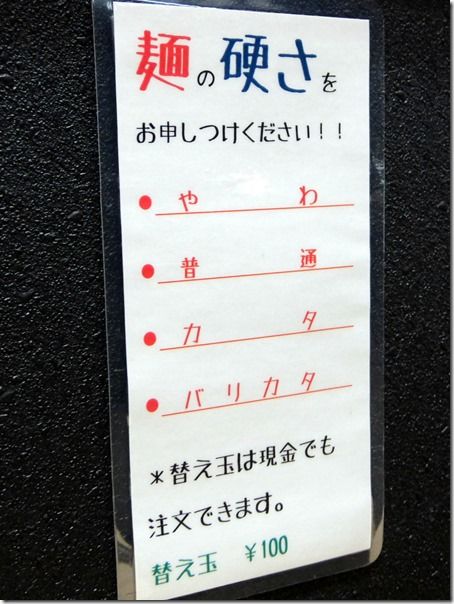 麺の硬さを
お申しつけください！！
● やわ
● 普通
● カタ
● バリカタ
＊替え玉は現金でも
注文できます。
替え玉 ￥100